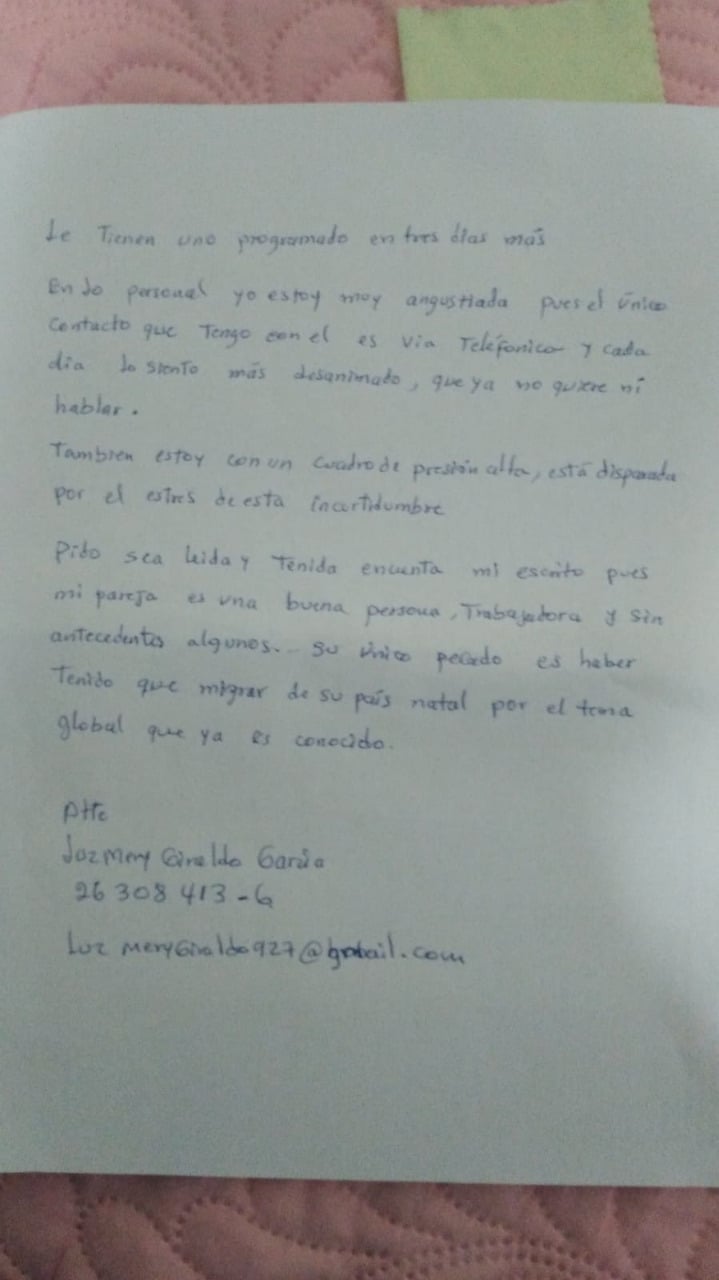 Le Tienen uno programado en tres días más
En lo personal yo estoy muy angustiada pues el único
contacto que Tengo con el es via Teléfonico y cada
día lo siento más desanimado, que ya no quiere ni
hablar.
Tambien estoy con un cuadro de presión alta, está disparada
por el estres de esta incertidumbre
Pido sea leida y Tenida encuenta mi escrito pues
mi pareja es una buena persona, Trabajadora y sin
antecedentes algunos.. Su único pecado es haber
Tenido que migrar de su país natal por el tema
global que ya es conocido.
Atte
Luz Mery Giraldo García
26 308 413-6
Luz MeryGiraldo927@gmail.com